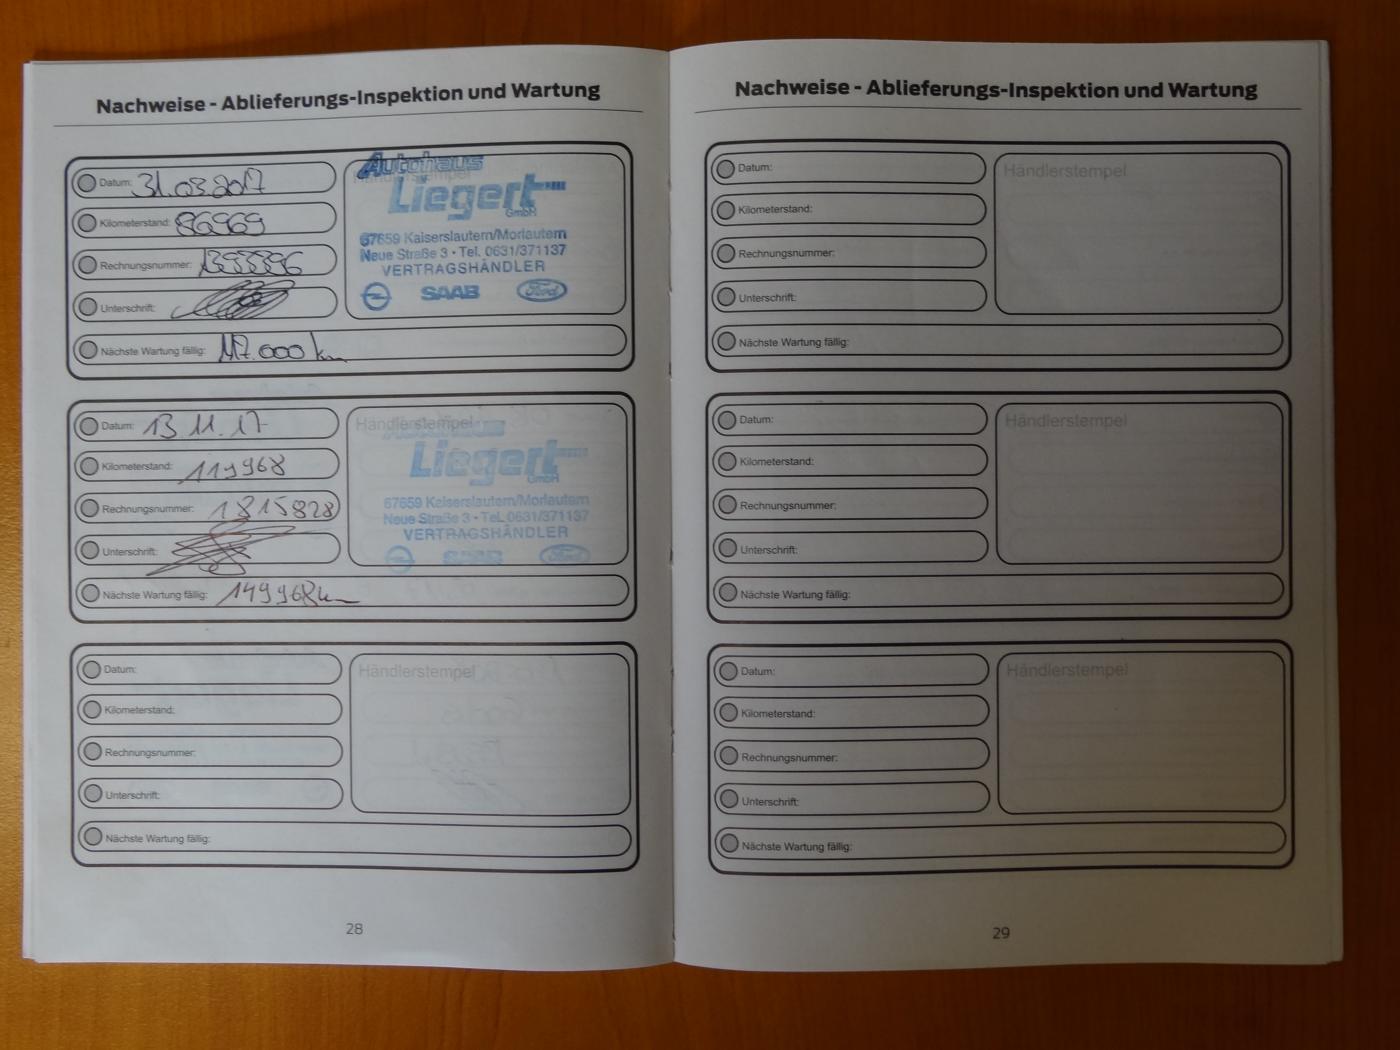 Nachweise - Ablieferungs-Inspektion und Wartung
Datum: 31.03.2017
Kilometerstand: 86969
Rechnungsnummer:
Unterschrift:
Nächste Wartung fällig: 117.000 km
Händlerstempel
Autohaus
Liegert
GmbH
67659 Kaiserslautern/Morlautern
Neue Straße 3 · Tel. 0631/371137
VERTRAGSHÄNDLER
SAAB Ford
Datum: 13 11. 17
Kilometerstand: 119968
Rechnungsnummer: 1815828
Unterschrift:
Nächste Wartung fällig: 149968km
Händlerstempel
Liegert
GmbH
67659 Kaiserslautern/Morlautern
Neue Straße 3 · Tel. 0631/371137
VERTRAGSHÄNDLER
SAAB Ford
Datum:
Kilometerstand:
Rechnungsnummer:
Unterschrift:
Nächste Wartung fällig:
Händlerstempel
28
Nachweise - Ablieferungs-Inspektion und Wartung
Datum:
Kilometerstand:
Rechnungsnummer:
Unterschrift:
Nächste Wartung fällig:
Händlerstempel
Datum:
Kilometerstand:
Rechnungsnummer:
Unterschrift:
Nächste Wartung fällig:
Händlerstempel
Datum:
Kilometerstand:
Rechnungsnummer:
Unterschrift:
Nächste Wartung fällig:
Händlerstempel
29